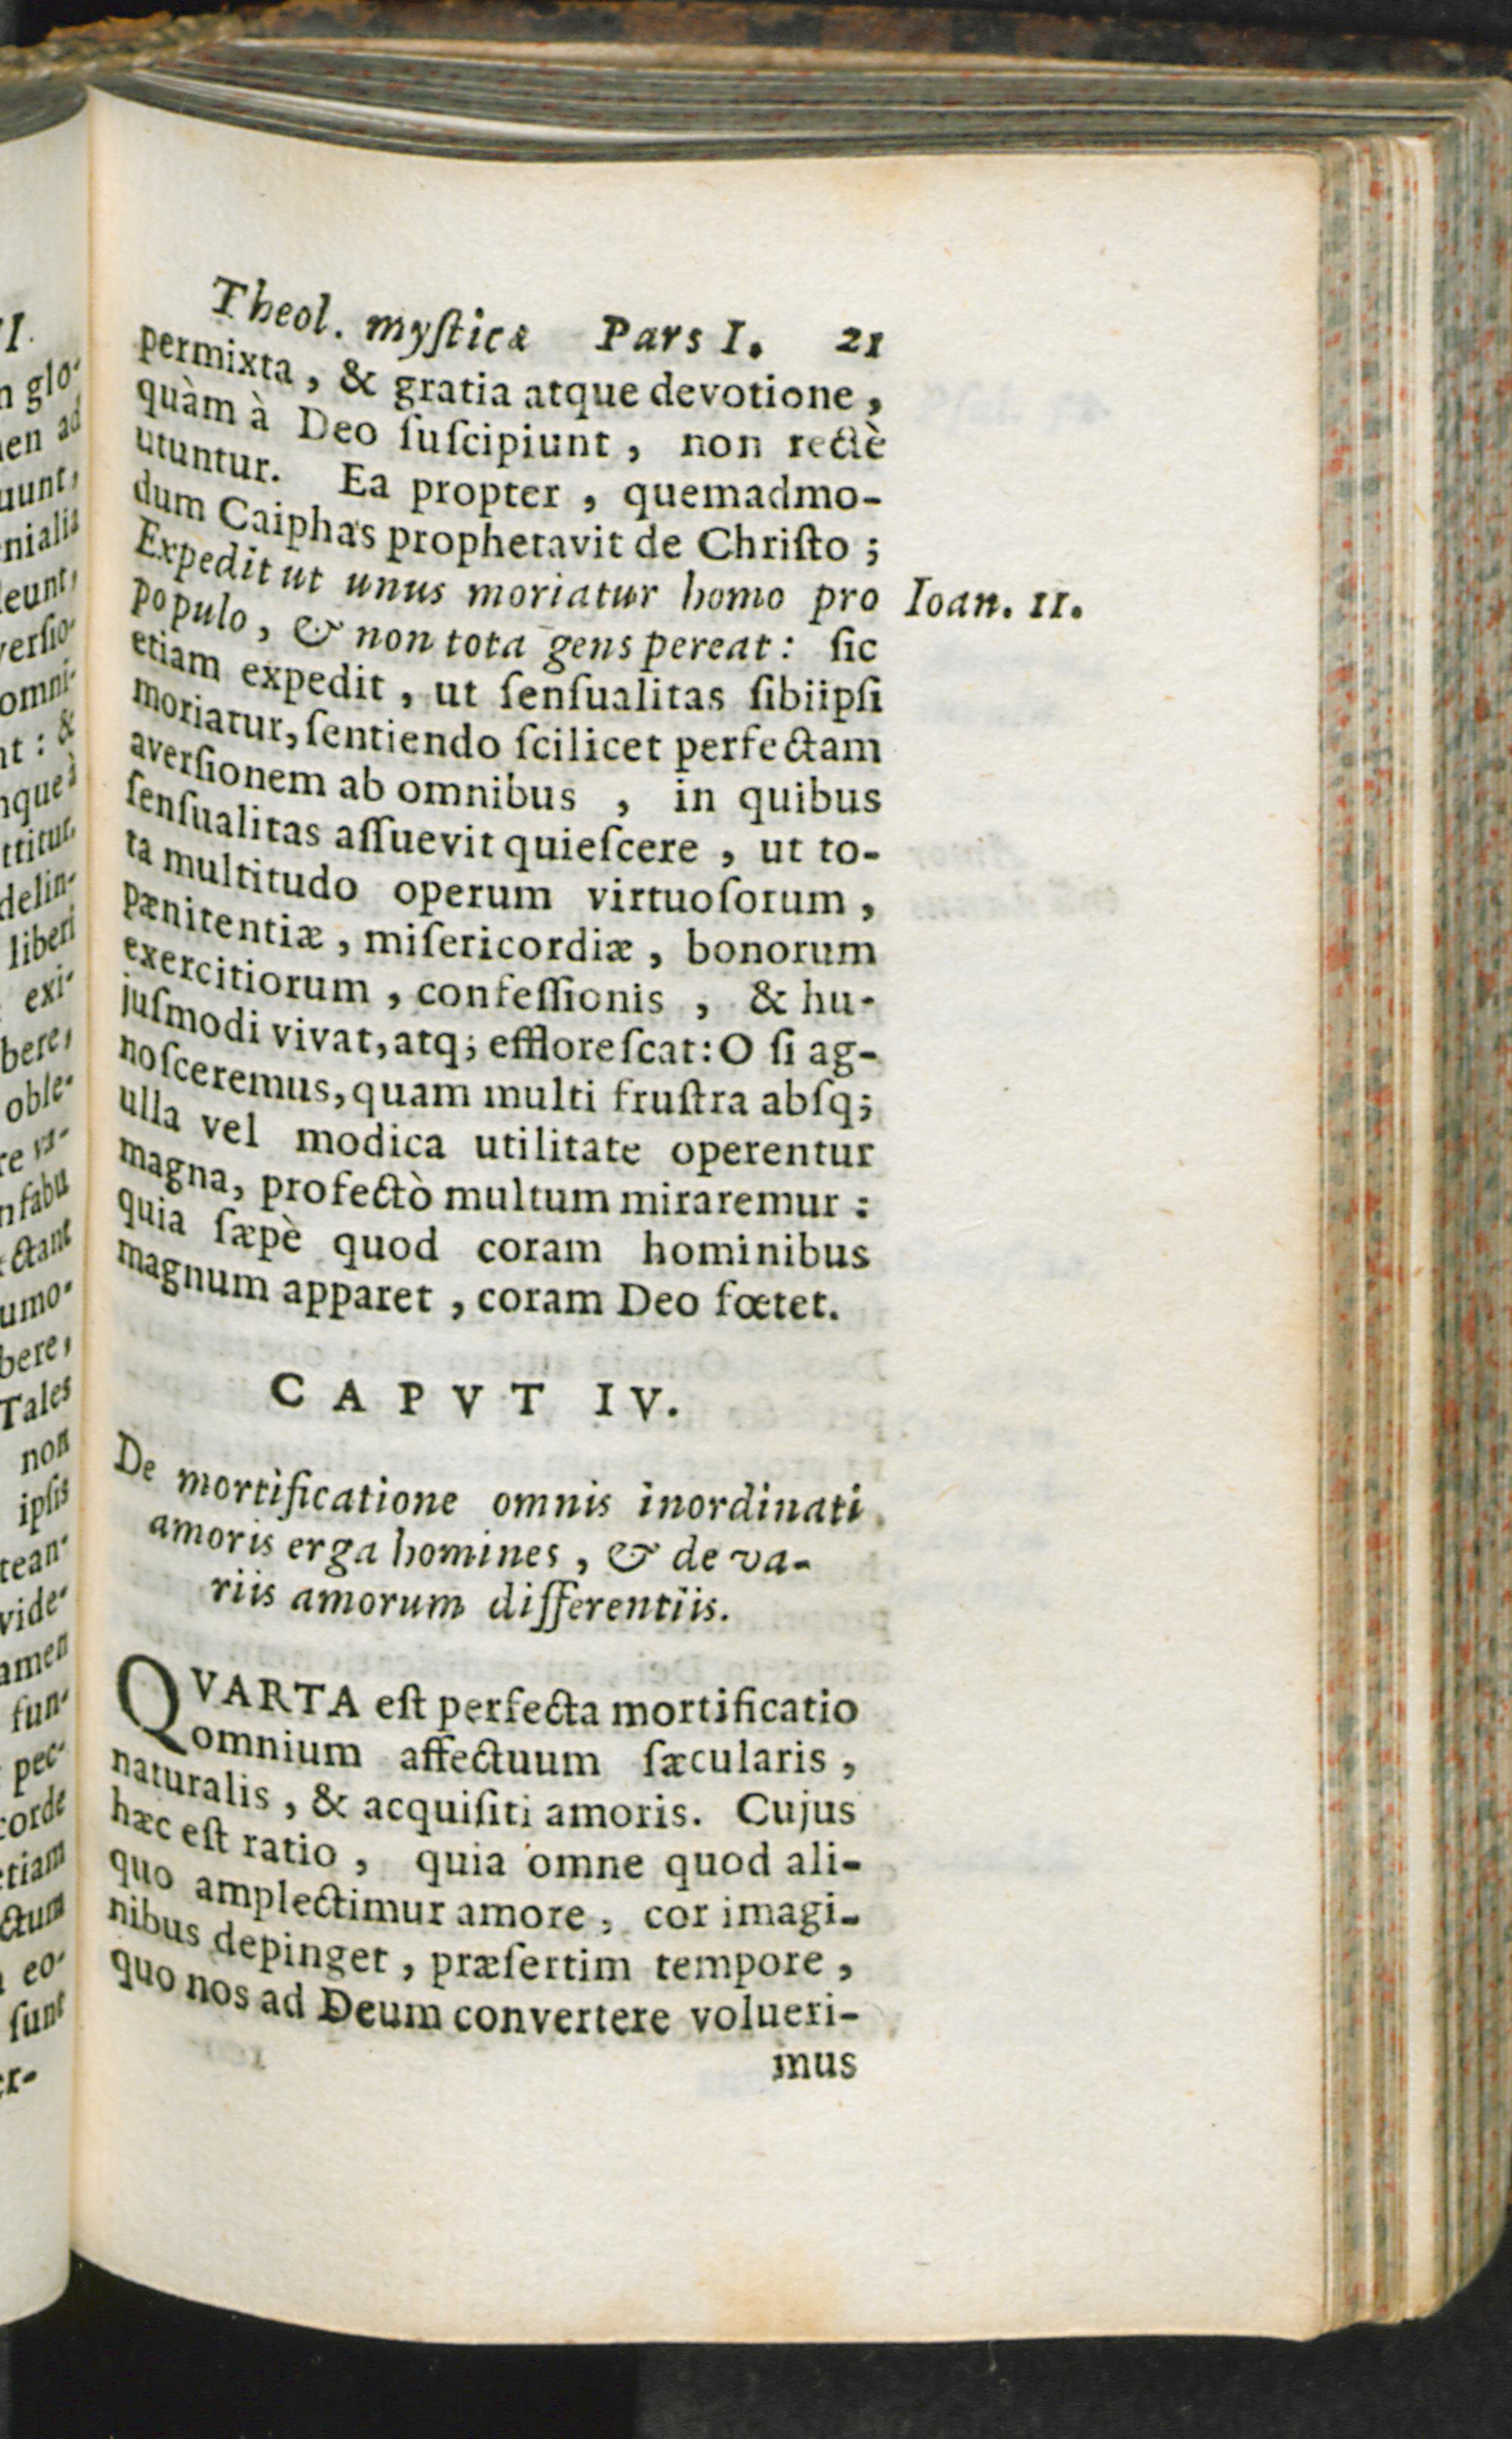 Theol. mysticæ Pars I. 21
permixta, & gratia atque devotione,
quàm à Deo ſuſcipiunt, non rectè
utuntur. Ea propter, quemadmo-
dum Caiphas prophetavit de Chriſto;
Expedit ut unus moriatur homo pro
Ioan. 11.
populo, & non tota gens pereat: ſic
etiam expedit, ut ſenſualitas ſibiipſi
moriatur, ſentiendo ſcilicet perfectam
averſionem ab omnibus, in quibus
ſenſualitas aſſuevit quieſcere, ut to-
ta multitudo operum virtuoſorum,
pænitentiæ, miſericordiæ, bonorum
exercitiorum, confeſſionis, & hu-
juſmodi vivat, atq; effloreſcat: O ſi ag-
noſceremus, quam multi fruſtra abſq;
ulla vel modica utilitate operentur
magna, profectò multum miraremur:
quia ſæpè quod coram hominibus
magnum apparet, coram Deo fœtet.
CAPVT IV.
De mortificatione omnis inordinati
amoris erga homines, & de va-
riis amorum differentiis.
QVARTA eſt perfecta mortificatio
omnium affectuum ſæcularis,
naturalis, & acquiſiti amoris. Cujus
hæc eſt ratio, quia omne quod ali-
quo amplectimur amore, cor imagi-
nibus depinget, præſertim tempore,
quo nos ad Deum convertere volueri-
mus